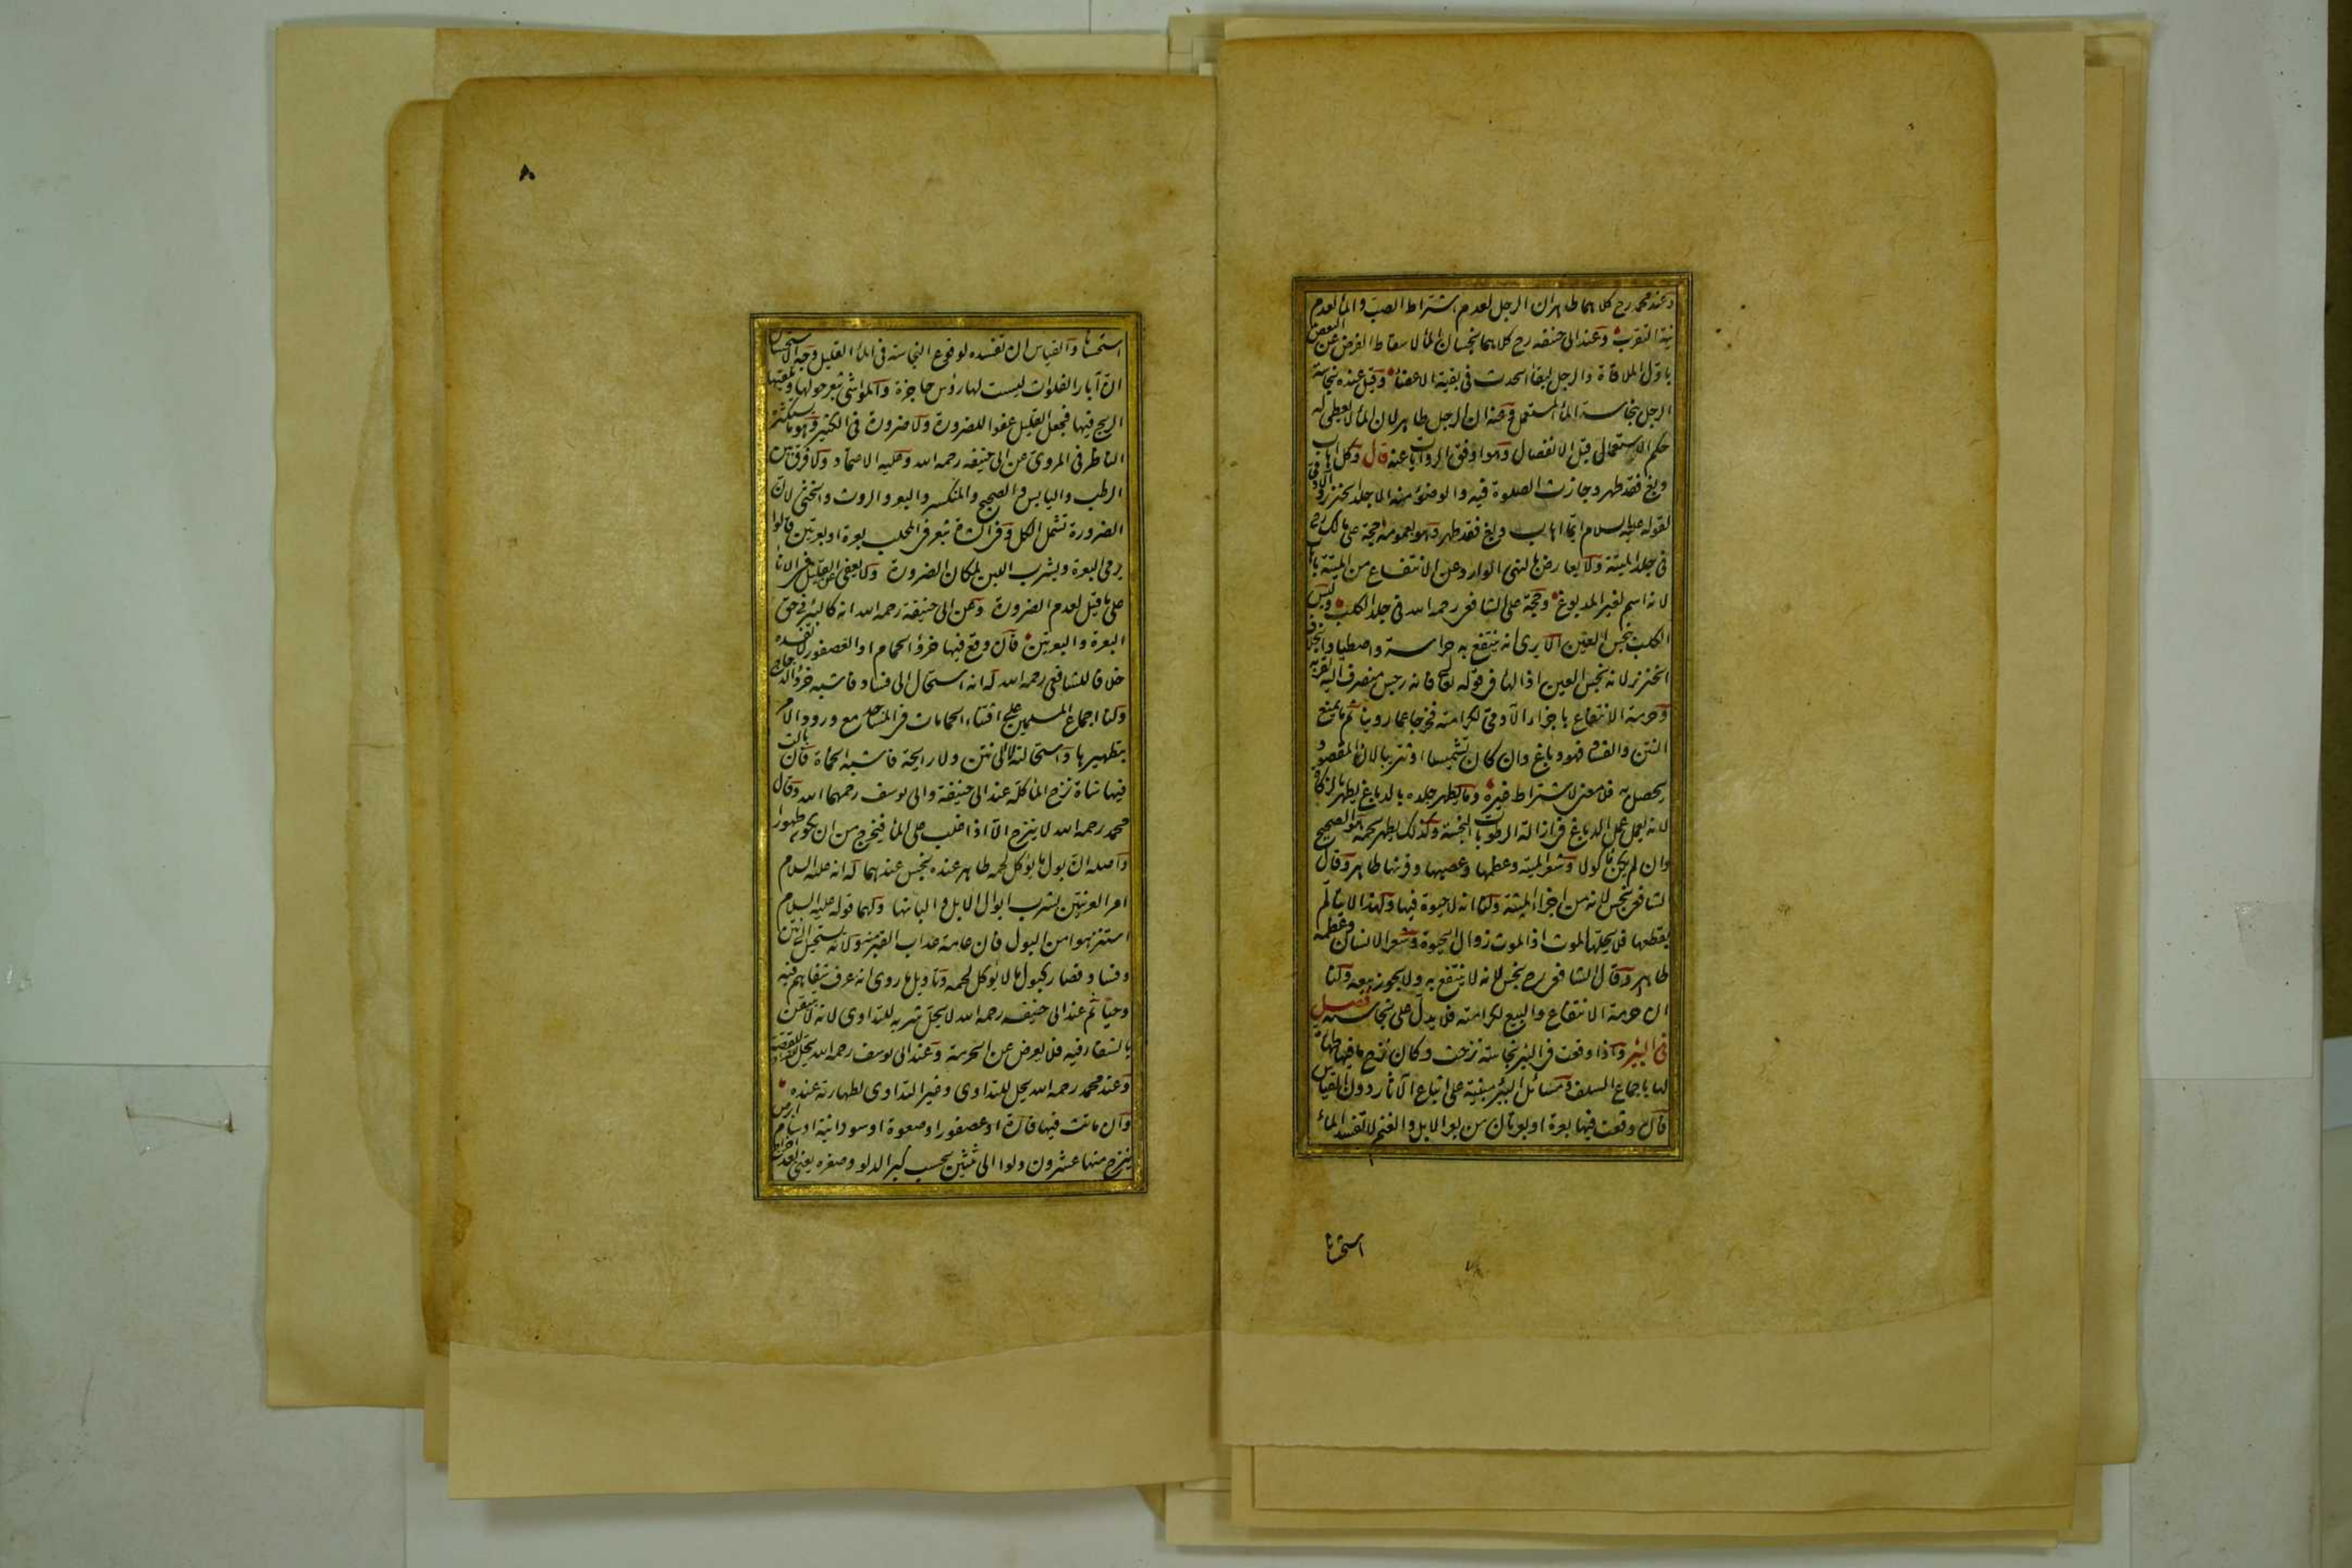 وعند محمد رح كلاهما طاهران الرجل لعدم اشتراط الصب والماء لعدم
نية التقرب وعند ابى حنيفه رح كلاهما نجسان الماء لاسقاط الفرض عن البعض
باول الملاقاة والرجل لبقاء الحدث فى بقية الاعضاء وقيل عنده نجاسة
الرجل بنجاسة الماء المستعمل وعنه ان الرجل طاهر لان الماء لا يعطى له
حكم الاستعمال قبل الانفصال وهو اوفق الروايات عنه قال وكل اهاب
دبغ فقد طهر وجازت الصلوة فيه والوضوء منه الا جلد الخنزير والآدمى
لقوله عليه السلام ايما اهاب دبغ فقد طهر وهو بعمومه حجة على مالك رح
فى جلد الميتة ولا يعارض بالنهى الوارد عن الانتفاع من الميتة باهاب
لانه اسم لغير المدبوغ وحجة على الشافعى رحمه الله فى جلد الكلب وليس
الكلب نجس العين الا يرى انه ينتفع به حراسة واصطيادا بخلاف
الخنزير لانه نجس العين اذ الهاء فى قوله تعالى فانه رجس منصرف اليه لقربه
وحرمة الانتفاع باجزاء الآدمى لكرامته فخرجا عما روينا ثم ما يمنع
النتن والفساد فهو دباغ وان كان تشميسا او تتريبا لان المقصود
يحصل به فلا معنى لاشتراط غيره وما يطهر جلده بالدباغ يطهر بالذكاة
لانه يعمل عمل الدباغ فى ازالة الرطوبات النجسة وكذلك يطهر لحمه هو الصحيح
وان لم يكن ماكولا وشعر الميتة وعظمها وعصبها وقرنها طاهر وقال
الشافعى نجس لانه من اجزاء الميتة ولنا انه لا حيوة فيها ولهذا لا يتالم
بقطعها فلا يحلها الموت اذ الموت زوال الحيوة وشعر الانسان وعظمه
طاهر وقال الشافعى رح نجس لانه لا ينتفع به ولا يجوز بيعه ولنا
ان حرمة الانتفاع والبيع لكرامته فلا يدل على نجاسته فصل
فى البئر واذا وقعت فى البئر نجاسة نزحت وكان نزح ما فيها طهارة
لها باجماع السلف ومسائل البئر مبنية على اتباع الآثار دون القياس
فان وقعت فيها بعرة او بعرتان من بعر الابل والغنم لا تفسد الماء
استحسانا
٨
استحسانا والقياس ان تفسده لوقوع النجاسة فى الماء القليل وجه الاستحسان
ان آبار الفلوات ليست لها رؤس حاجزة والمواشى تبعر حولها وتلقيها
الريح فيها فجعل القليل عفوا للضرورة ولا ضرورة فى الكثير وهو ما يستكثره
الناظر فى المروى عن ابى حنيفه رحمه الله وعليه الاعتماد ولا فرق بين
الرطب واليابس والصحيح والمنكسر والبعر والروث والخثى لان
الضرورة تشمل الكل وفى الشاة تبعر فى المحلب بعرة او بعرتين قالوا
يرمى البعرة ويشرب اللبن لمكان الضرورة ولا يعفى عن القليل فى الاناء
على ما قيل لعدم الضرورة وعن ابى حنيفة رحمه الله انه كالبئر فى حق
البعرة والبعرتين فان وقع فيها خرؤ الحمام او العصفور لا تفسده
خلافا للشافعى رحمه الله له انه استحال الى فساد فاشبه خرؤ الدجاج
ولنا اجماع المسلمين على اقتناء الحمامات فى المساجد مع ورود الامر
بتطهيرها واستحالته لا الى نتن ولا رايحة فاشبه الحماة فان بالت
فيها شاة نزح الماء كله عند ابى حنيفة وابى يوسف رحمهما الله وقال
محمد رحمه الله لا ينزح الا اذا غلب على الماء فيخرج من ان يكون طهورا
واصله ان بول ما يؤكل لحمه طاهر عنده نجس عندهما له انه عليه السلام
امر العرنيين بشرب ابوال الابل والبانها ولهما قوله عليه السلام
استنزهوا من البول فان عامة عذاب القبر منه ولانه يستحيل الى نتن
وفساد فصار كبول ما لا يؤكل لحمه وتاويل ما روى انه عرف شفاهم فيه
وحيا ثم عند ابى حنيفه رحمه الله لا يحل شربه للتداوى لانه لا يتيقن
بالشفاء فيه فلا يعرض عن الحرمة وعند ابى يوسف رحمه الله يحل للقصة
وعند محمد رحمه الله يحل للتداوى وغير التداوى لطهارته عنده
وان ماتت فيها فارة او عصفور او صعوة او سودانية او سام ابرص
ينزح منها عشرون دلوا الى ثلثين بحسب كبر الدلو وصغره يعنى بعد